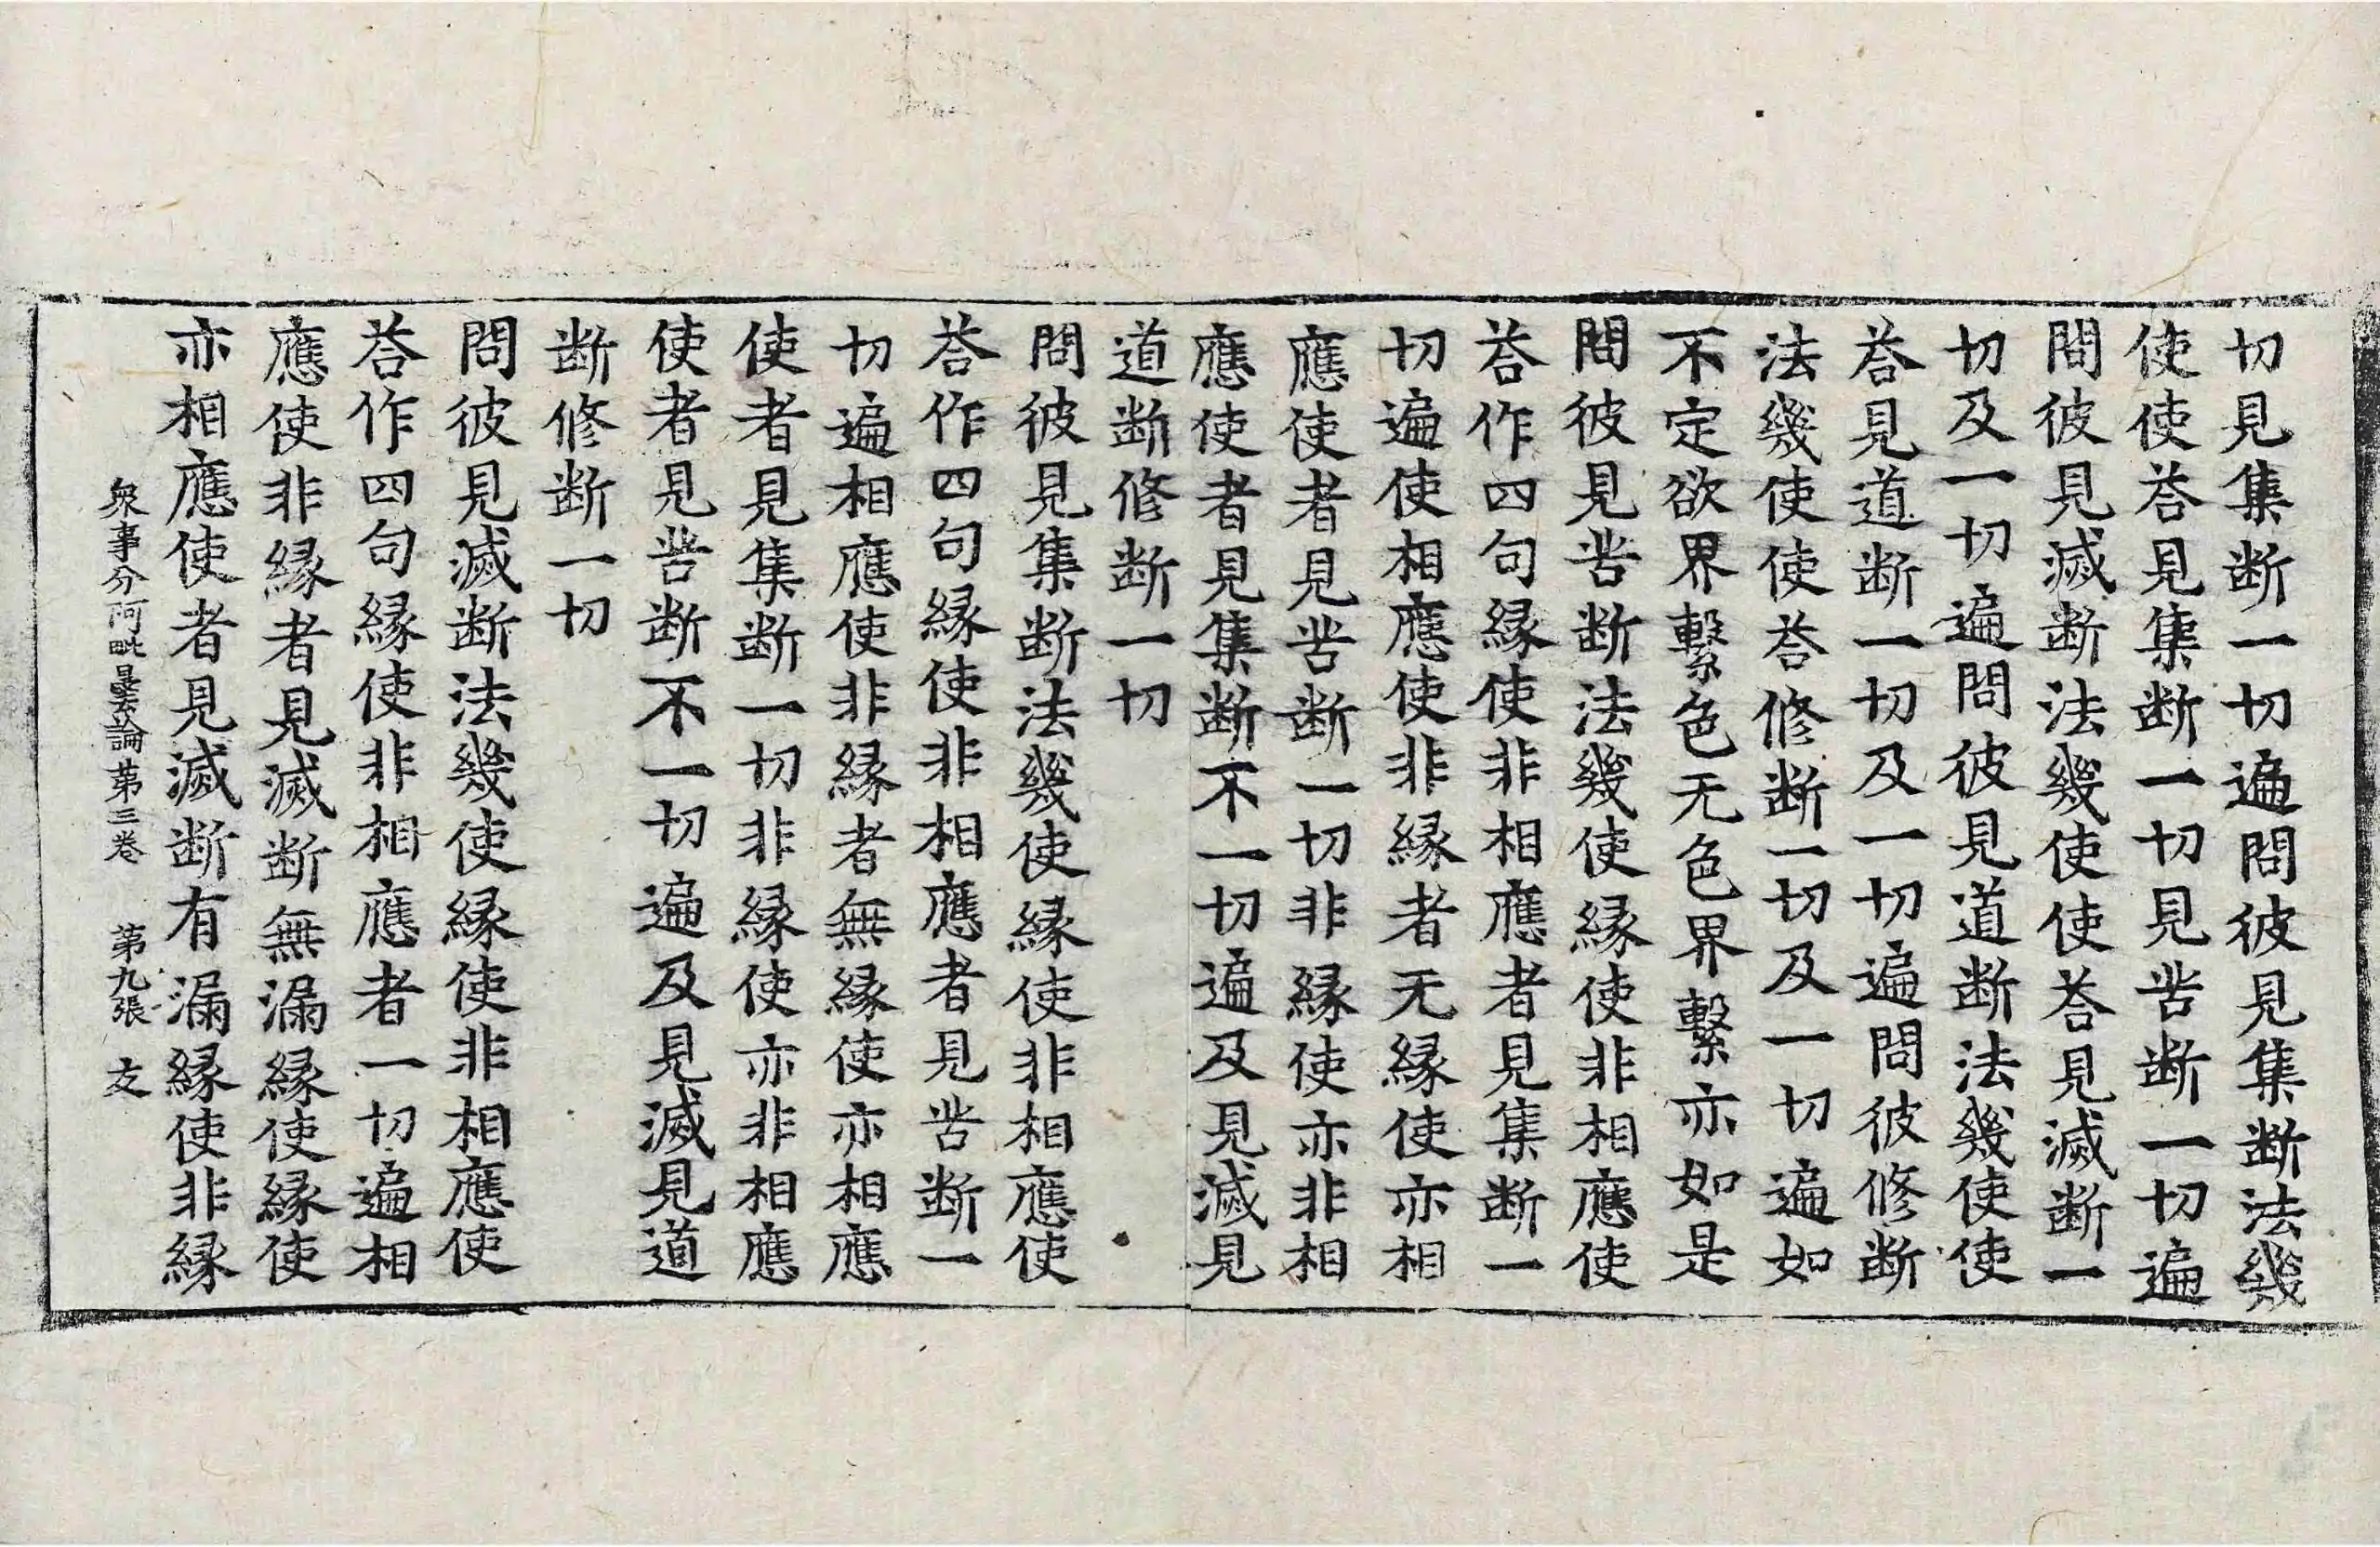 切見集断一切遍問彼見集断法幾
使使荅見集断一切見苦断一切遍
問彼見滅断法幾使使荅見滅断一
切及一切遍問彼見道断法幾使使
荅見道断一切及一切遍問彼修断
法幾使使荅修断一切及一切遍如
不定欲界繫色无色界繫亦如是
問彼見苦断法幾使縁使非相應使
荅作四句縁使非相應者見集断一
切遍使相應使非縁者无縁使亦相
應使者見苦断一切非縁使亦非相
應使者見集断不一切遍及見滅見
道断修断一切
問彼見集断法幾使縁使非相應使
荅作四句縁使非相應者見苦断一
切遍相應使非縁者無縁使亦相應
使者見集断一切非縁使亦非相應
使者見苦断不一切遍及見滅見道
断修断一切
問彼見滅断法幾使縁使非相應使
荅作四句縁使非相應者一切遍相
應使非縁者見滅断無漏縁使縁使
亦相應使者見滅断有漏縁使非縁
衆事分阿毗曇論苐三卷 第九張 友